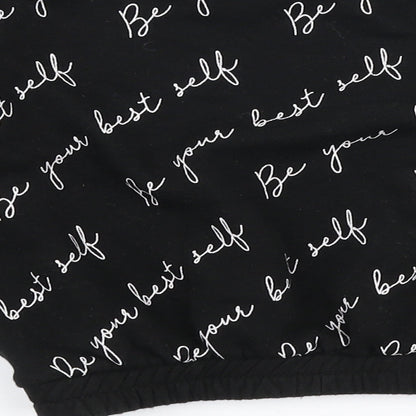 Be Be
self Be your best self
Be your best self Be your
best self Be your best self
Be your best self Be your best self
Be your best